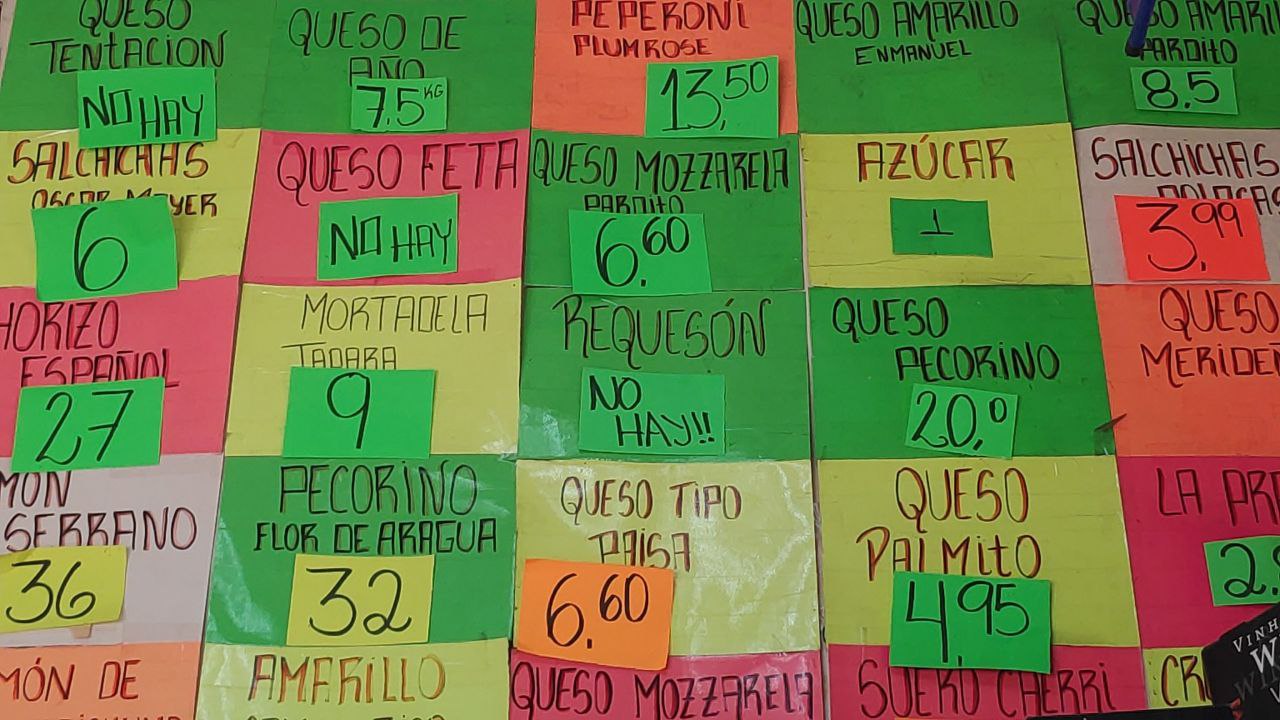 QUESO
TENTACION
NO HAY
QUESO DE
AÑO
7.5 KG
PEPERONI
PLUMROSE
13,50
QUESO AMARILLO
ENMANUEL
QUESO
PARDITO
8.5
SALCHICHAS
OSCAR MAYER
6
QUESO FETA
NO HAY
QUESO MOZZARELA
PARDITO
6.60
AZÚCAR
1
SALCHICHAS
3,99
ESPAÑOL
27
MORTADELA
TAPARA
9
REQUESÓN
NO
HAY!!
QUESO
PECORINO
20,0
QUESO
SERRANO
36
PECORINO
FLOR DE ARAGUA
32
QUESO TIPO
PAISA
6.60
QUESO
PALMITO
4,95
LA
2.
DE
AMARILLO
QUESO MOZZARELA
SUERO